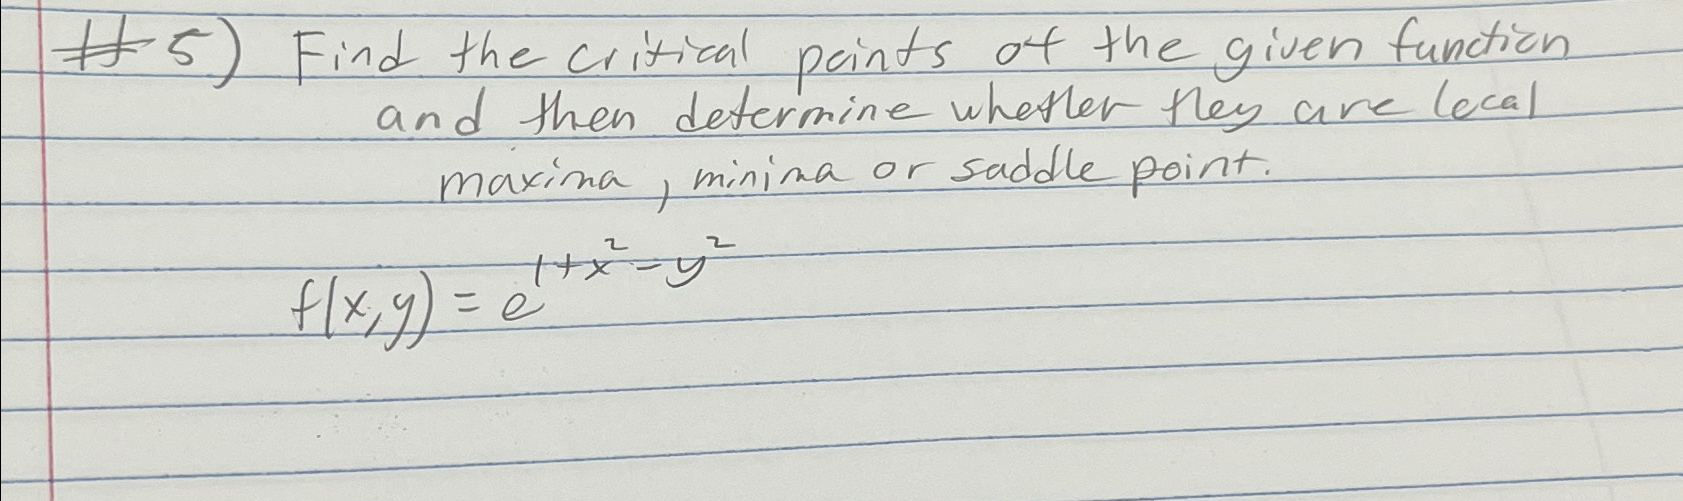 #5) Find the critical points of the given function
and then determine whether they are local
maxima, minima or saddle point.
f(x,y) = e^{1+x^2-y^2}